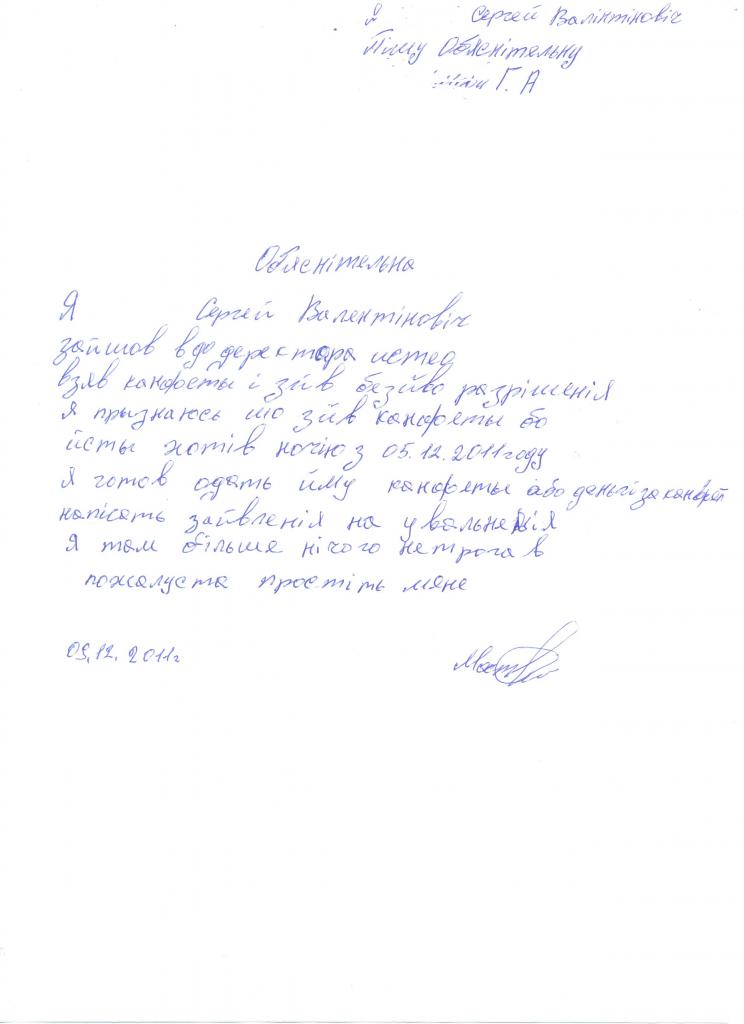 Сергей Валінтіновіч
Пішу Обяснітельну
Г. А
Обяснітельна
Я Сергей Валентіновіч
зайшов в до деректара
взяв канфеты і зйів безйво разрішенія
я прызнаюсь шо зйів канфеты бо
йісты хотів ночію з 05.12.2011 году
я готов одать йму канфеты або деньгі за канфеты
напісать зайвленія на увальненія
я там більше нічого нетрогав
пожалуста простіть мяне
05.12.2011г